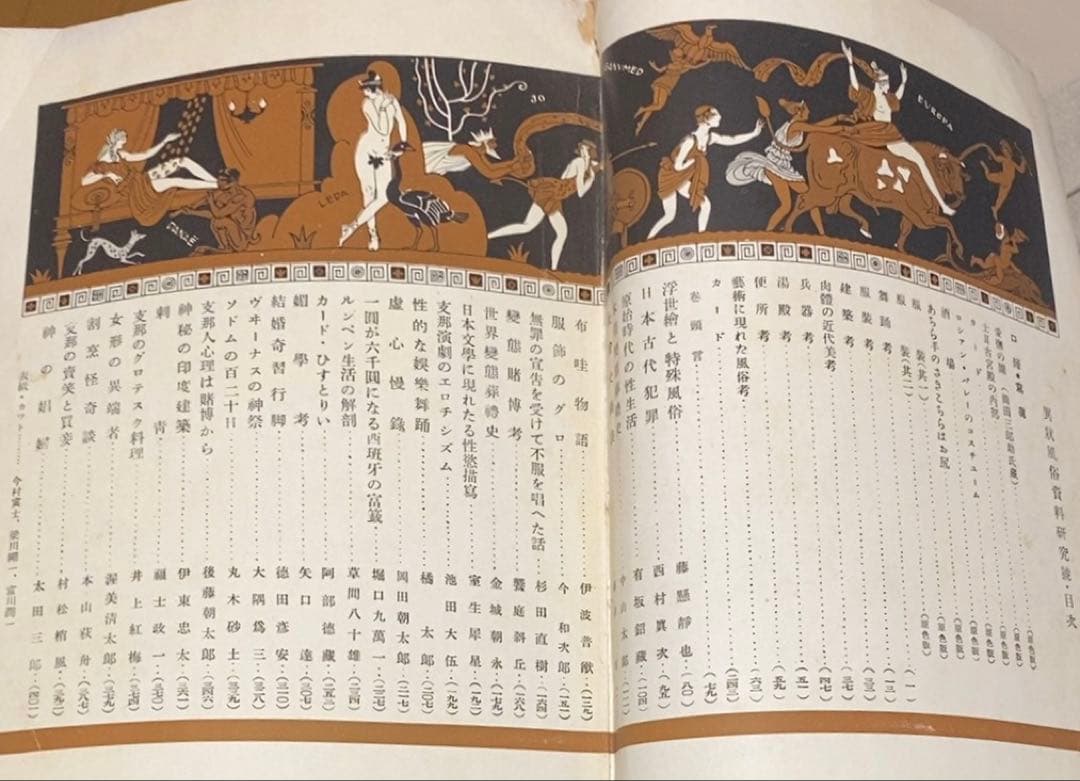 GANYMED
EUROPA
30
LEDA
DANAË
異狀風俗資料研究號・目次
口繪・寫眞
土耳古宮殿の内部……(原色版)
カード……(原色版)
酒場……(原色版)
あちら手のささこちらはお尻……(原色版)
服裝(其一)……(原色版)
服裝(其二)……(原色版)
舞踊考……(一)
服裝考……(一三)
建築考……(三三)
肉體の近代美考……(三七)
兵器考……(四七)
湯殿考……(五一)
便所考……(五九)
藝術に現れた風俗考……(六三)
カード……(二四三)
卷頭言……(七九)
浮世繪と特殊風俗……藤懸靜也…(八〇)
日本古代犯罪……西村眞次…(九五)
原始時代の性生活……有坂鉊藏…(一〇四)
布哇物語……伊波普猷…(一三九)
服飾のグロ……今和次郎…(一五一)
無罪の宣告を受けて不服を唱へた話……杉田直樹…(一六四)
變態賭博考……饗庭斜丘…(一六八)
世界變態葬禮史……金城朝永…(一七九)
日本文學に現れたる性慾描寫……室生犀星…(一九二)
支那演劇のエロチシズム……池田大伍…(一九九)
性的な娛樂舞踊……橘太郎…(二〇七)
虛心慢錄……岡田朝太郎…(二一七)
一圓が六千圓になる西班牙の富籤……堀口九萬一…(二二七)
ルンペン生活の解剖……草間八十雄…(二三四)
カード・ひすとりい……阿部德藏…(二五三)
媚學考……矢口達…(三〇七)
結婚奇習行脚……德田彦安…(三二〇)
ヴヰーナスの神祭……大隅爲三…(三二八)
ソドムの百二十日……丸木砂土…(三三九)
支那人心理は賭博から……後藤朝太郎…(三四六)
神秘の印度建築……伊東忠太…(三六一)
刺靑……福士政一…(三七〇)
支那のグロテスク料理……井上紅梅…(三七四)
女形の異端者……渥美清太郎…(三七九)
割烹怪奇談……本山荻舟…(三八七)
支那の賣笑と買妾……村松梢風…(三九二)
神の娼婦……太田三郎…(四〇一)
表紙・カット……今村寅士、梁川剛一、富川潤一